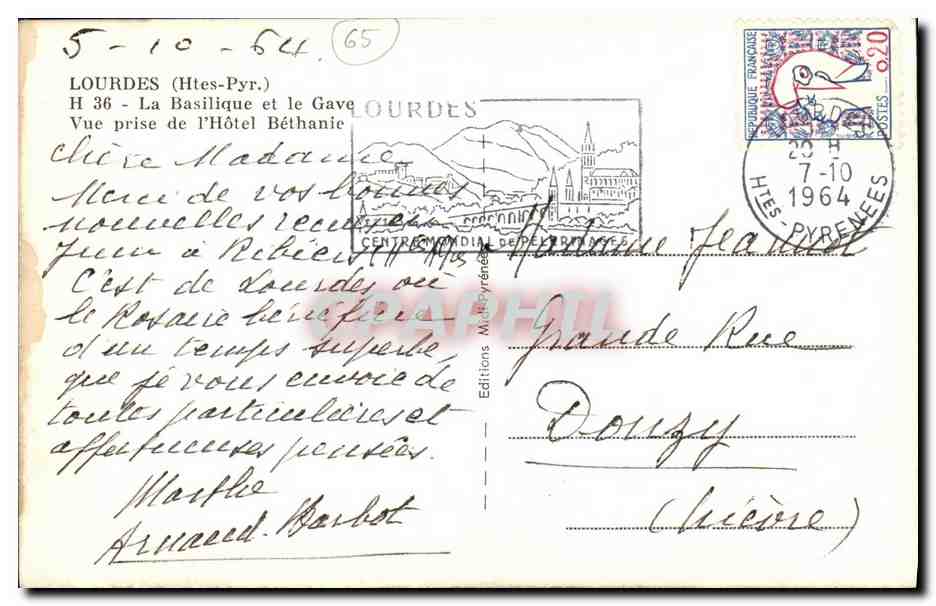 5 - 10 - 64.
65
LOURDES (Htes-Pyr.)
H 36 - La Basilique et le Gave
Vue prise de l'Hôtel Béthanie
Chère Madame
Merci de vos bonnes
nouvelles reçues en
Juin à
C'est de Lourdes où
le Rosaire bénéficie
d'un temps superbe,
que je vous envoie de
toutes particulières et
affectueuses pensées.
Marthe
Arnaud-Barbot
LOURDES
CENTRE MONDIAL DE PÈLERINAGES
Editions Midi-Pyrénées
CPAPHIL
REPUBLIQUE FRANÇAISE
0,20
POSTES
LOURDES
20 H
7-10
1964
HTES-PYRENEES
Madame Jeannot
Grande Rue
Donzy
(Nièvre)